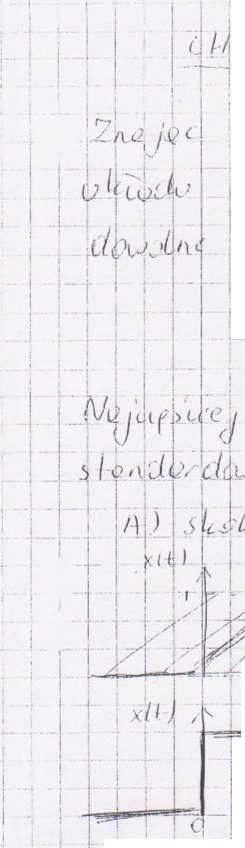 Znając
układu
dowolne
Najwięcej
standardow
A) skok
x(t)
1
x(t)
0